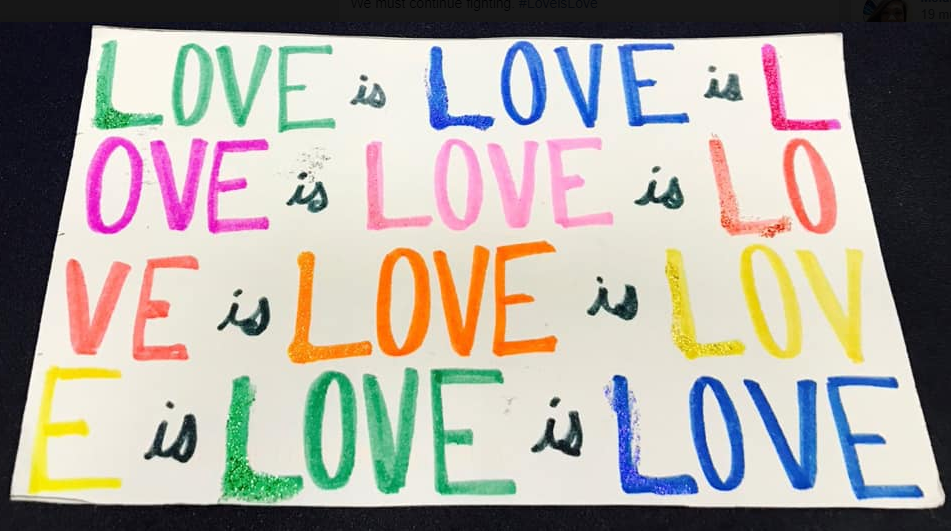 We must continue fighting. #LoveIsLove
LOVE is LOVE is L
OVE is LOVE is LO
VE is LOVE is LOV
E is LOVE is LOVE